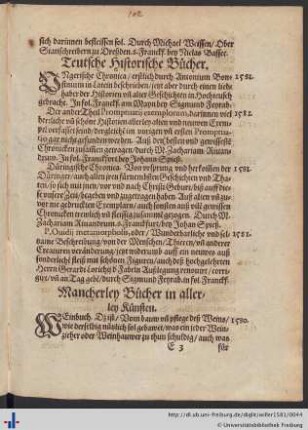 sich darinnen befleissen sol. Durch Michael Weissen / Ober
Stattschreibern zu Dreßden. 8. Franckf. bey Niclas Bassee.
Teutsche Historische Bücher.
VNgerische Chronica / erstlich durch Antonium Bon- 1581.
finium in Latein beschrieben / jetzt aber durch einen lieb-
haber der Historien vñ alter Geschichten in Hochteutsch
gebracht. In fol. Franckf. am Mayn bey Sigmund Feyrab.
Der ander Theil Promptuarii exemplorum, darinnen viel 1582.
herrliche vñ schöne Historien allerley alten und neuwen Exem-
pel verfasset seind / dergleicht im vorigen vñ ersten Promptua-
rio gar nicht gefunden werden. Auß den besten vnd gewissesten
Chronicken zusamen getragen / durch M. Zachariam Rivan-
drum. In fol. Franckfurt bey Johann Spieß.
Düringische Chronica. Von vrsprung vnd herkom̃en der 1581.
Düringer / auch allen jren fürnembsten Geschichten vnd Tha-
ten / so sich mit jnen / vor vnd nach Christi Geburt / biß auff die-
se vnsere Zeit / begeben vnd zugetragen haben Auß alten vñ zu-
vor nie gedruckten Exemplarn / auch sonsten auß viel gewissen
Chronicken trewlich vñ fleissig zusam̃e gezogen. Durch M.
Zachariam Rivandrum. 4. Franckfurt / bey Johan Spieß.
P. Ouidij metamorphosis, oder / Wunderbarliche vnd sel- 1581.
tzame Beschreibung / von der Menschen / Thieren / vñ anderer
Creaturen veränderung / jetzt widerumb auff ein neuwes auß
sonderlichem fleiß mit schönen Figuren / auch deß hochgelehrtē
Herrn Gerardi Lorichij ð Fabeln Außlegung renouirt / corri-
girt / vñ an Tag gebē / durch Sigmund Feyrab. in fol. Franckf.
Mancherley Bücher in aller-
ley Künsten.
WEinbuch. Das ist / Vom bauw vñ pflege deß Weins / 1580.
wie derselbig nützlich sol gebawet / was ein jeder Wein-
zieher oder Weinhauwer zu thun schuldig / auch was
E 3 für
http://dl.ub.uni-freiburg.de/diglit/willer1581/0044
© Universitätsbibliothek Freiburg